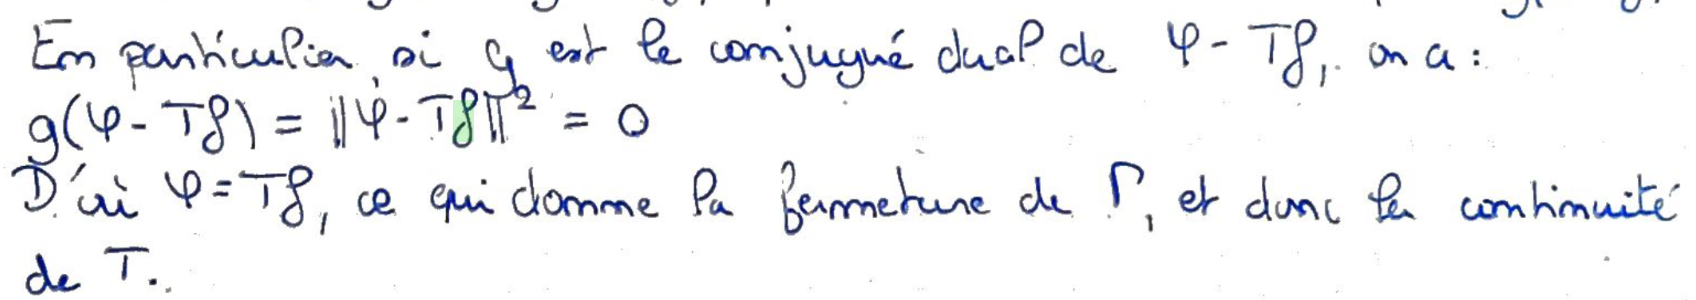 En particulier, si g est le conjugué dual de φ - Tf, on a :
g(φ - Tf) = ||φ - Tf||² = 0
D'où φ = Tf, ce qui donne la fermeture de Γ, et donc la continuité
de T.